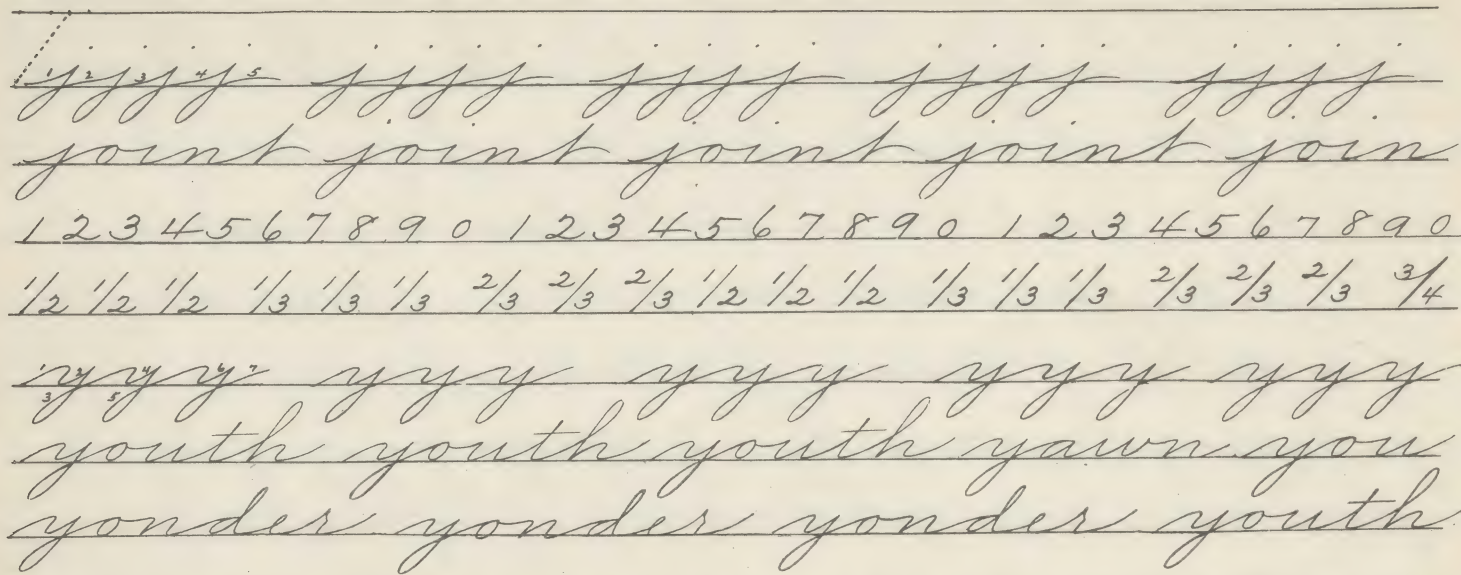 1 j 2 j 3 j 4 j 5 jjjj jjjj jjjj jjjj
joint joint joint joint join
1 2 3 4 5 6 7 8 9 0 1 2 3 4 5 6 7 8 9 0 1 2 3 4 5 6 7 8 9 0
1/2 1/2 1/2 1/3 1/3 1/3 2/3 2/3 2/3 1/2 1/2 1/2 1/3 1/3 1/3 2/3 2/3 2/3 3/4
1 y 2 3 y 4 5 y 6 7 yyy yyy yyy yyy
youth youth youth yawn you
yonder yonder yonder youth